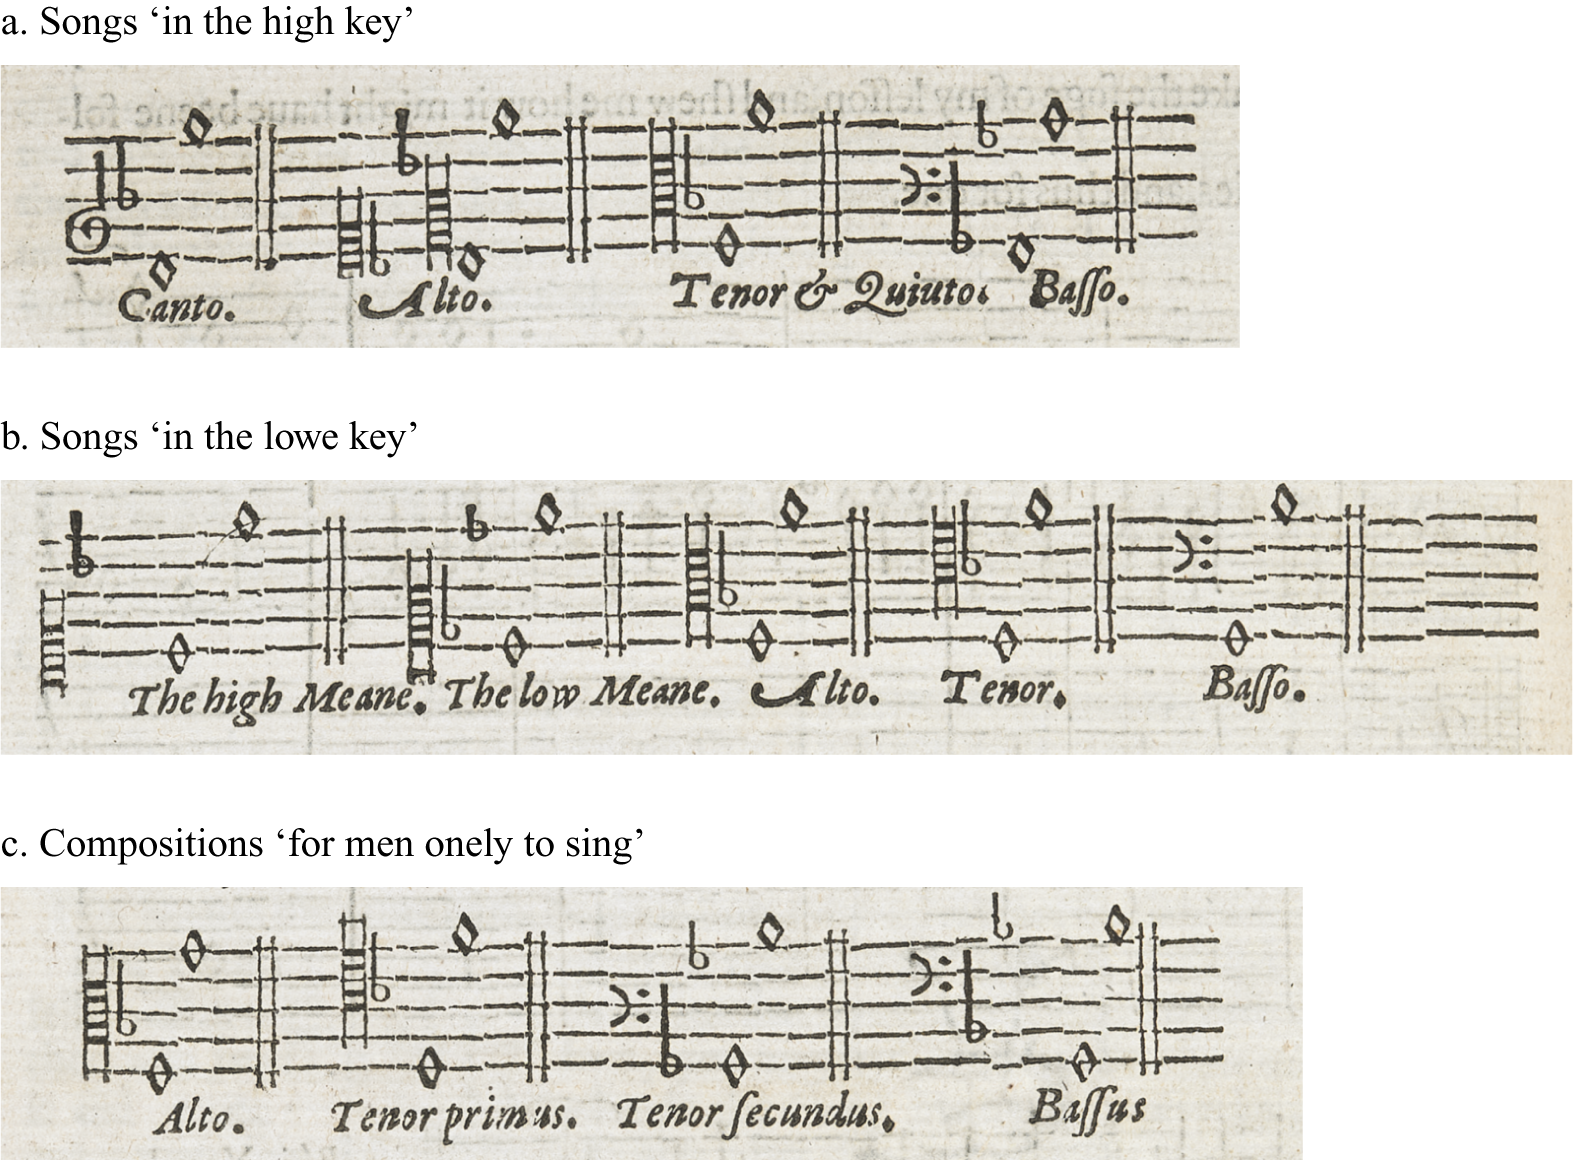 a. Songs ‘in the high key’
Canto. Alto. Tenor & Quiuto. Baſſo.
b. Songs ‘in the lowe key’
The high Meane. The low Meane. Alto. Tenor. Baſſo.
c. Compositions ‘for men onely to sing’
Alto. Tenor primus. Tenor ſecundus. Baſſus